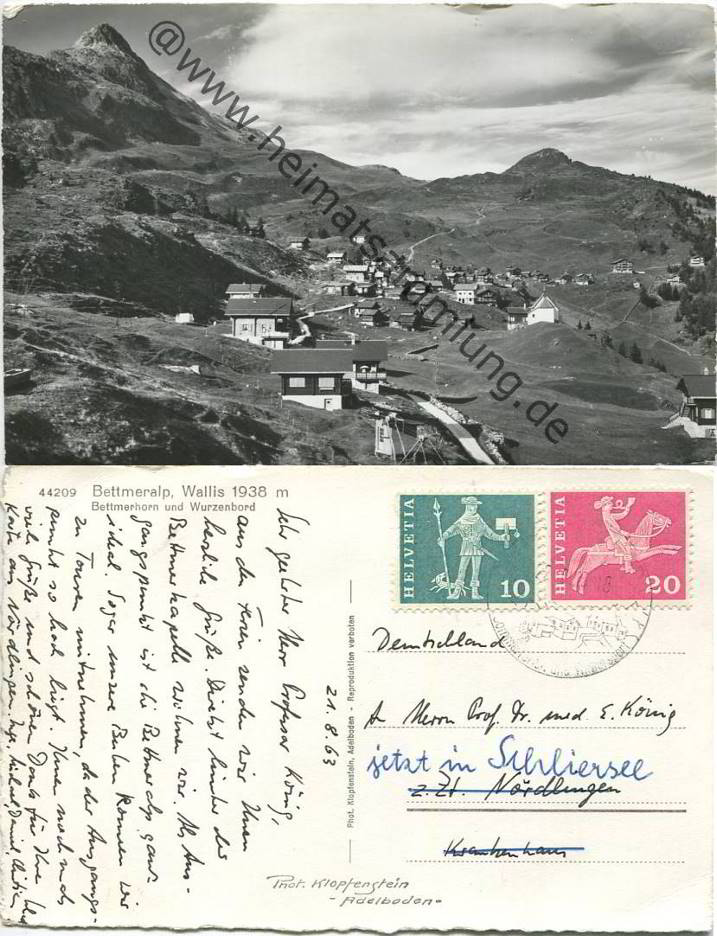 @www.heimatsammlung.de
44209 Bettmeralp, Wallis 1938 m
Bettmerhorn und Wurzenbord
Sehr geehrter Herr Professor König,
aus den Ferien senden wir Ihnen
herzliche Grüße. Direkt hinter der
Bettmerkapelle wohnen wir. Als Aus-
gangspunkt ist die Bettmeralp ganz
ideal. Sogar unsere Buben können wir
zu Touren mitnehmen, da der Ausgangs-
punkt so hoch liegt. Ihnen nochmals
viele Grüße und schönen Dank für Ihre
Karte aus Nördlingen.
21.8.63
Phot. Klopfenstein, Adelboden - Reproduktion verboten
HELVETIA
10
HELVETIA
20
Deutschland
An Herrn Prof. Dr. med. E. König
jetzt in Schliersee
z. Zt. Nördlingen
Krankenhaus
Phot. Klopfenstein
- Adelboden -